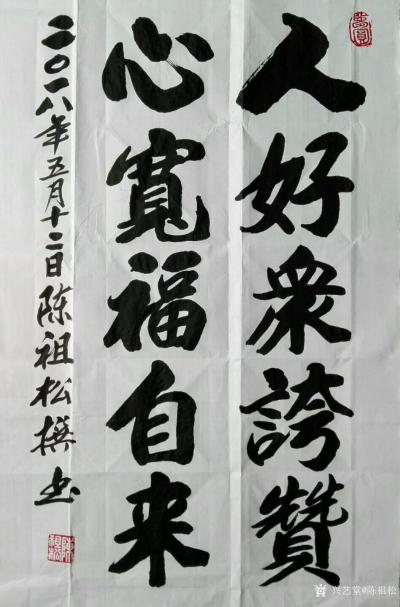 人好衆誇贊
心寬福自来
二〇一八年五月十二日陈祖松撰书
兴艺堂@陈祖松